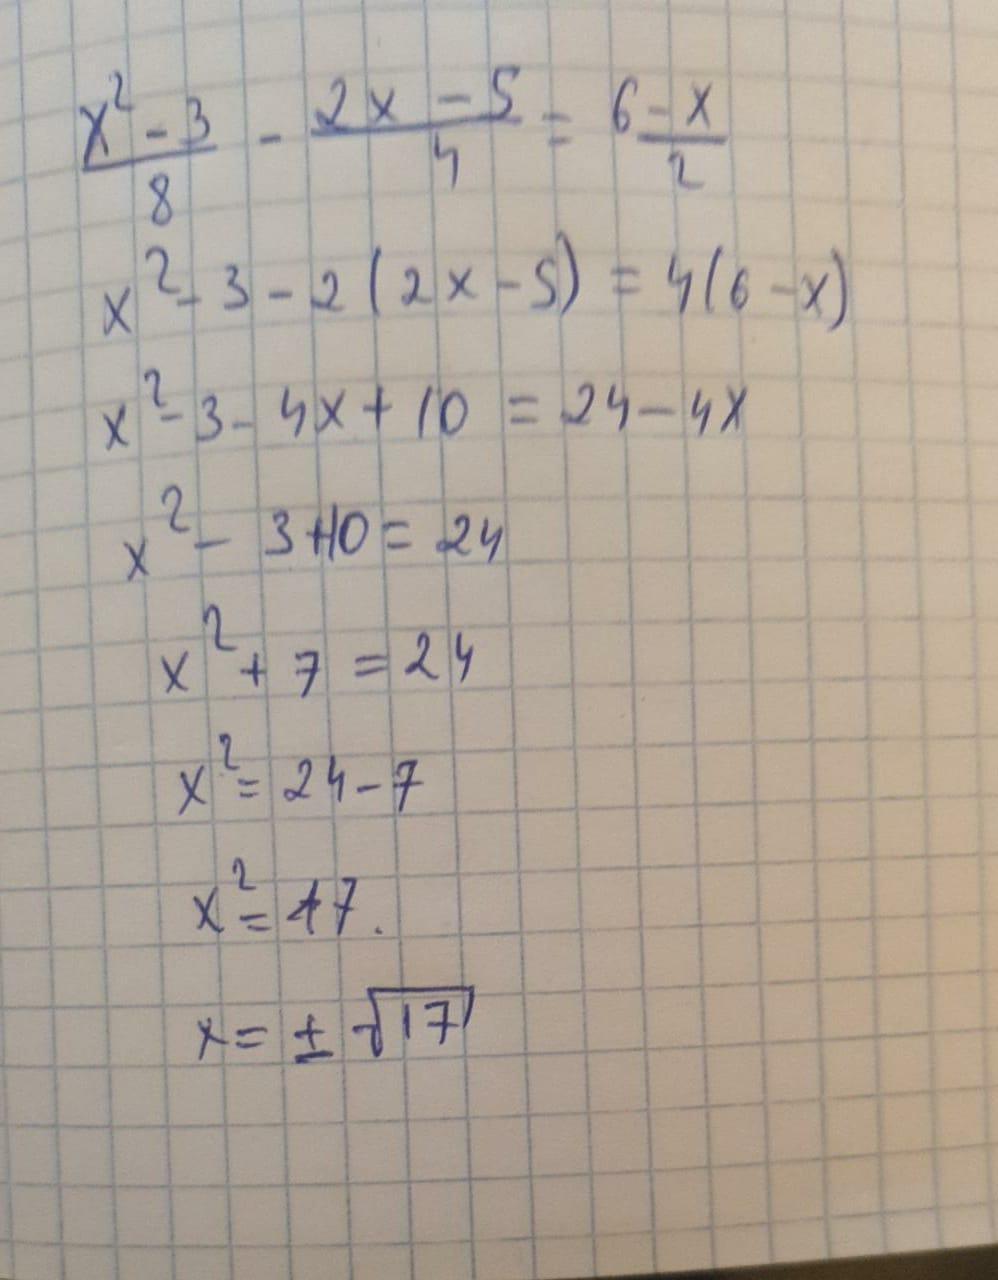 (x² - 3)/8 - (2x - 5)/4 = (6 - x)/2
x² - 3 - 2(2x - 5) = 4(6 - x)
x² - 3 - 4x + 10 = 24 - 4x
x² - 3 + 10 = 24
x² + 7 = 24
x² = 24 - 7
x² = 17.
x = ± √17